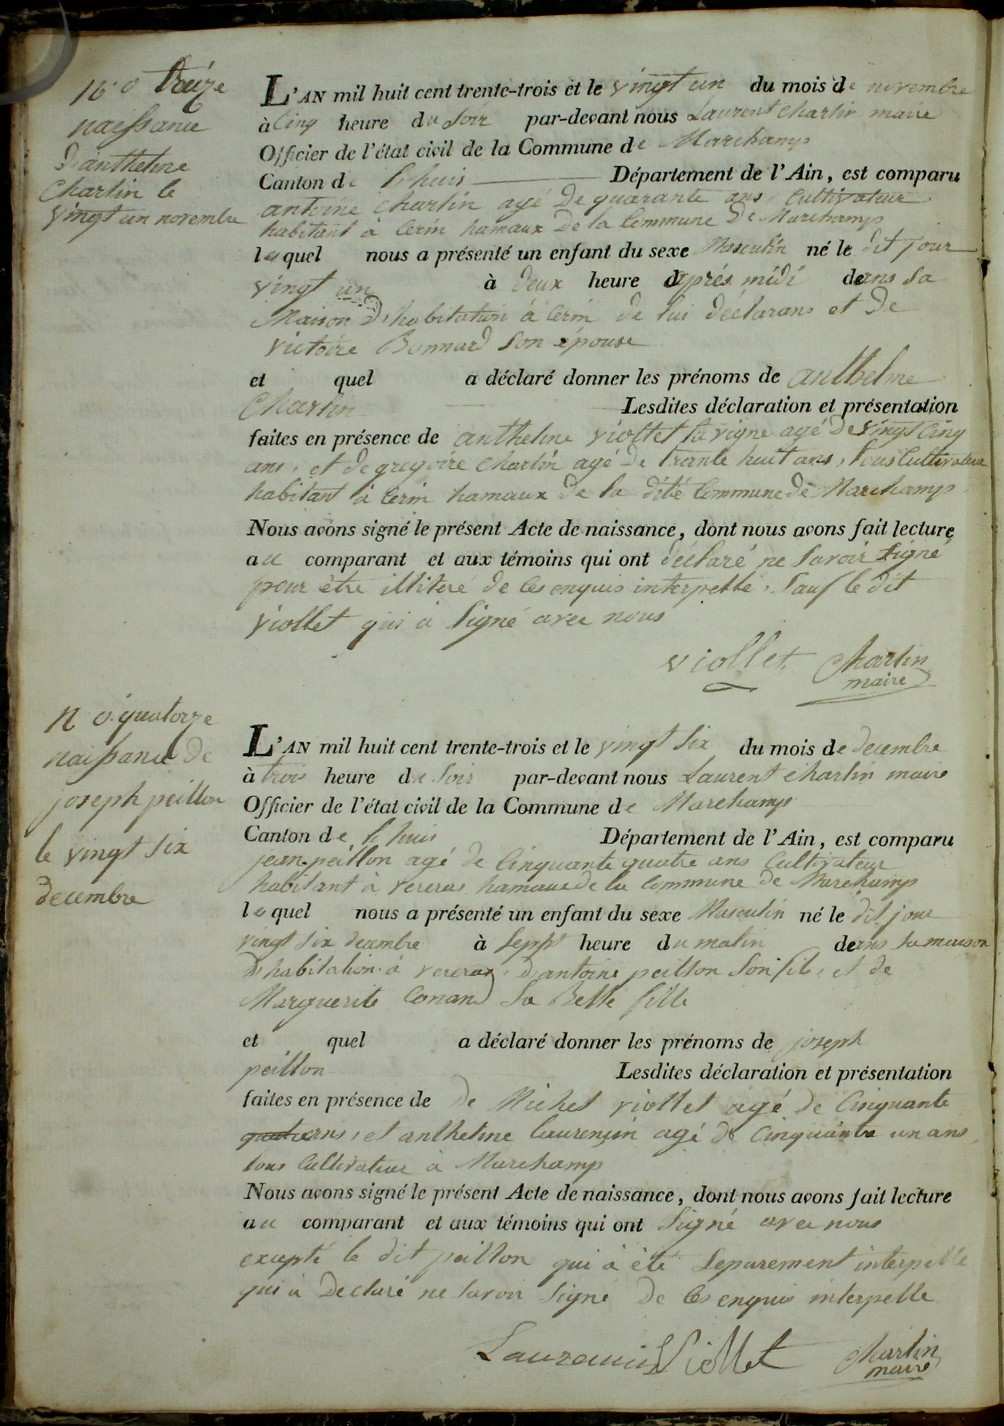 N.o treize
naissance
D'anthelme
Charlin le
vingt un novembre
L'AN mil huit cent trente-trois et le vingt un du mois de novembre
à Cinq heure du Soir par-devant nous Laurent Charlin maire
Officier de l'état civil de la Commune de Marchamp
Canton de L'huis Département de l'Ain, est comparu
antoine Charlin agé de quarante ans, Cultivateur
habitant à Cerin hamaux de la Commune De Marchamp
lequel nous a présenté un enfant du sexe Masculin né le dit jour
vingt un à deux heure d'après midi dans sa
Maison D'habitation à Cerin de lui déclarans et De
victoire Bonnard son épouse
et quel a déclaré donner les prénoms de anthelme
Charlin Lesdites déclaration et présentation
faites en présence de anthelme viollet la vigne agé de vingt Cinq
ans, et de gregoire Charlin agé De trante huit ans, tous Cultivateur
habitant à Cerin hamaux de la dite Commune de Marchamp
Nous avons signé le présent Acte de naissance, dont nous avons fait lecture
au comparant et aux témoins qui ont déclaré ne Savoir Signé
pour être illiteré de Ces enquis interpellé, Sauf le dit
viollet qui à Signé avec nous
viollet Charlin
maire
N o. quatorze
naissance de
joseph peillon
le vingt six
decembre
L'AN mil huit cent trente-trois et le vingt Six du mois de decembre
à trois heure du Soir par-devant nous Laurent Charlin maire
Officier de l'état civil de la Commune de Marchamp
Canton de L'huis Département de l'Ain, est comparu
jean peillon agé de Cinquante quatre ans Cultivateur
habitant à hamaux de la Commune de Marchamp
lequel nous a présenté un enfant du sexe Masculin né le dit jour
vingt Six decembre à Sept heure du matin dans sa maison
D'habitation à D'antoine peillon Son fils, et de
Marguerite Conand Sa Belle fille
et quel a déclaré donner les prénoms de joseph
peillon Lesdites déclaration et présentation
faites en présence de de Michel viollet agé de Cinquante
quatre ans, et anthelme Laurencin agé de Cinquante un ans,
tous Cultivateur à Marchamp
Nous avons signé le présent Acte de naissance, dont nous avons fait lecture
au comparant et aux témoins qui ont Signé avec nous
excepté le dit peillon qui à été Separement interpellé
qui à Declaré ne Savoir Signé de Ces enquis interpelle
Laurencin Viollet Charlin
maire